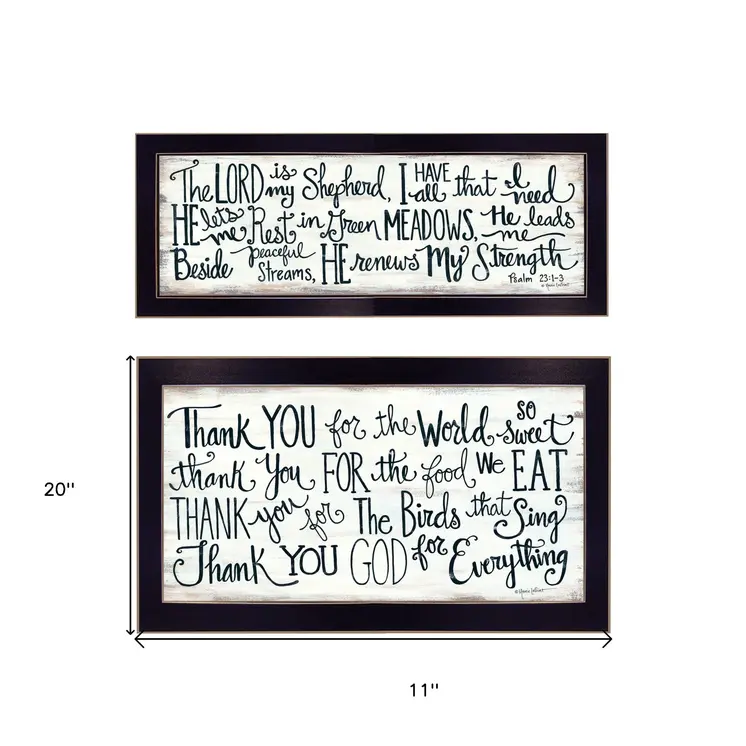 The LORD is my Shepherd, I HAVE all that I need
HE lets me Rest in Green MEADOWS, He leads me
Beside peaceful Streams, HE renews My Strength
Psalm 23:1-3
Thank YOU for the World so sweet
thank You FOR the food We EAT
THANK you for The Birds that Sing
Thank YOU GOD for Everything
20"
11"